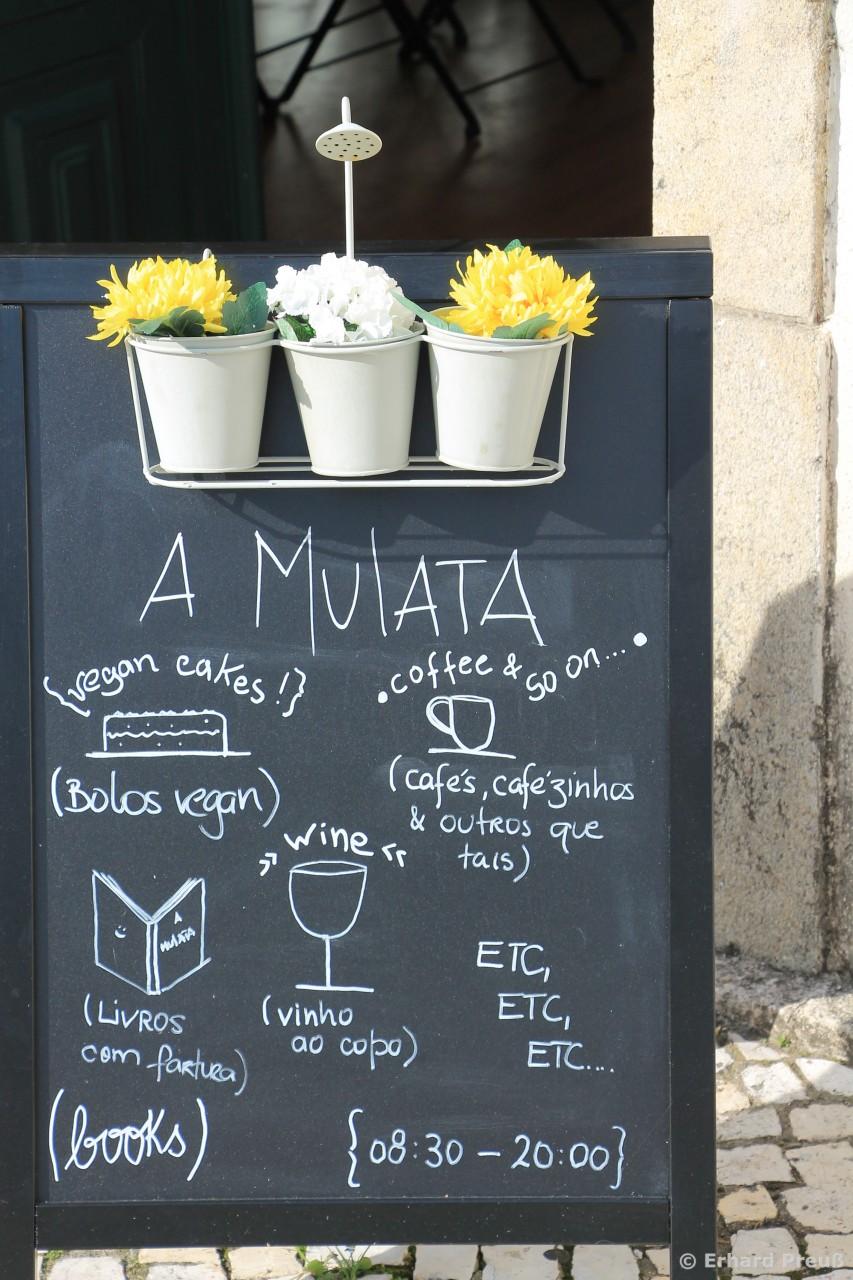 A MULATA
{vegan cakes!}
•coffee & so on...•
(Bolos vegan)
(cafés, cafézinhos
& outros que
tais)
» wine «
A
MULATA
(LIVROS
com fartura)
(vinho
ao copo)
ETC,
ETC,
ETC....
(books)
{08:30 – 20:00}
© Erhard Preuß